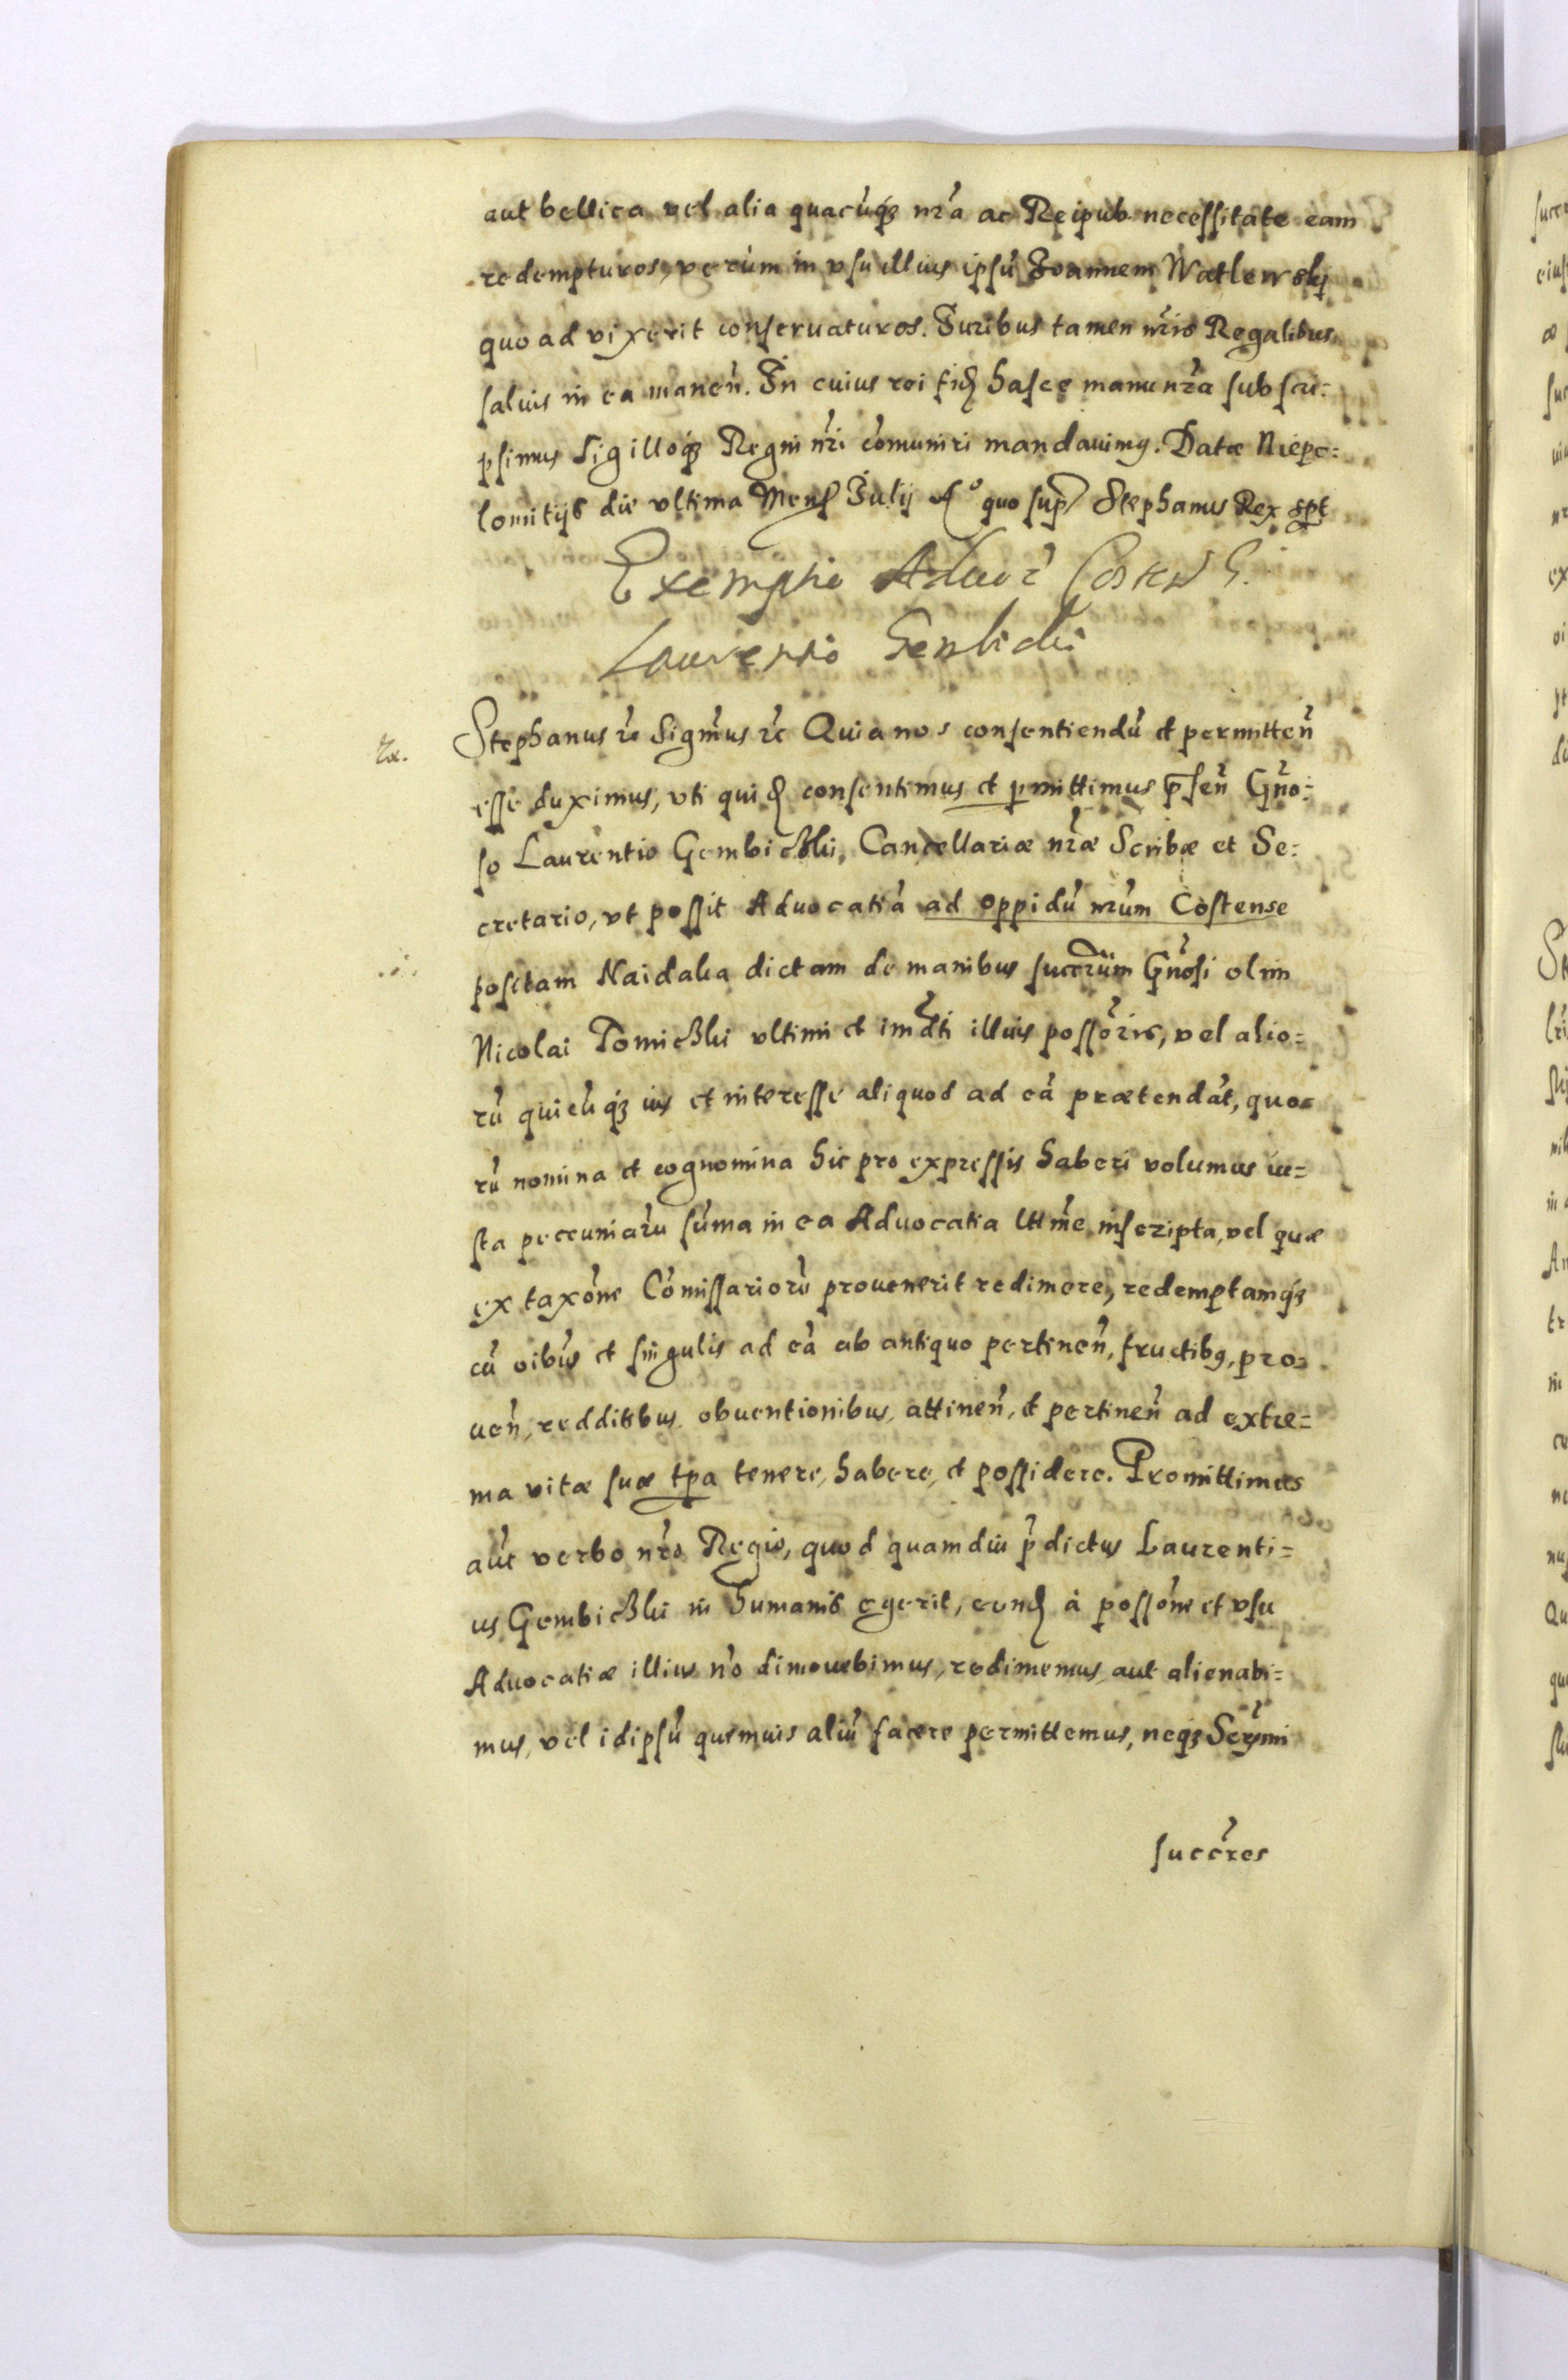 aut bellica vel alia quacúq₃ nr̃a ac Reipub. necessitate eam
redempturos, verùm in vsu illius ipsũ Joannem Watlewskj
quo ad vixerit conseruaturos. Juribus tamen nr̃is Regalibus
saluis in ea maneñ. In cuius rei fid₃ hasce manu nr̃a subscri=
psimus Sigilloq₃ Regni nr̃i cõmuniri mandauimꝰ. Datæ Niepo=
lomitijs die vltima Mens Julij Aº quo supr̃ Stephanus Rex spt
Exemptio Aduoc̃ Costen G.
Laurentio Gembicki
Stephanus rc̃ Sigm̃us rc̃ Quia nos consentiendũ et permitteñ
esse duximus, vti quid₃ consentimus et ꝑmittimus p̃señ Gño=
so Laurentio Gembiczki, Cancellariæ nr̃æ Scribæ et Se=
cretario, vt possit Aduocatiã ad oppidũ nr̃um Costense
positam Naidalia dictam de manibus succr̃um Gñosi olim
Nicolai Tomiczki vltimi et imd̃ti illius possõris, vel alio=
rũ quicũq₃ ius et interesse aliquod ad eã prætendãt, quo=
rũ nomina et cognomina hic pro expressis haberi volumus iu=
sta peccuniarũ sũma in ea Aduocatia lttm̃e inscripta, vel quæ
ex taxõne Cõmissariorũ prouenerit redimere, redemptamq₃
cũ oĩbus et singulis ad eã ab antiquo pertineñ, fructibꝰ, pro=
ueñ, redditibus, obuentionibus, attineñ, et pertineñ ad extre=
ma vitæ suæ tp̃a tenere, habere, et possidere. Promittimus
aũt verbo nr̃o Regio, quod quamdiu p̃dictus Laurenti=
us Gembiczki in humanis egerit, eund₃ à possõne et vsu
Aduocatiæ illius nõ dimouebimus, redimemus, aut alienabi=
mus, vel idipsũ quemuis aliũ facere permittemus, neq₃ Serm̃i
succr̃es